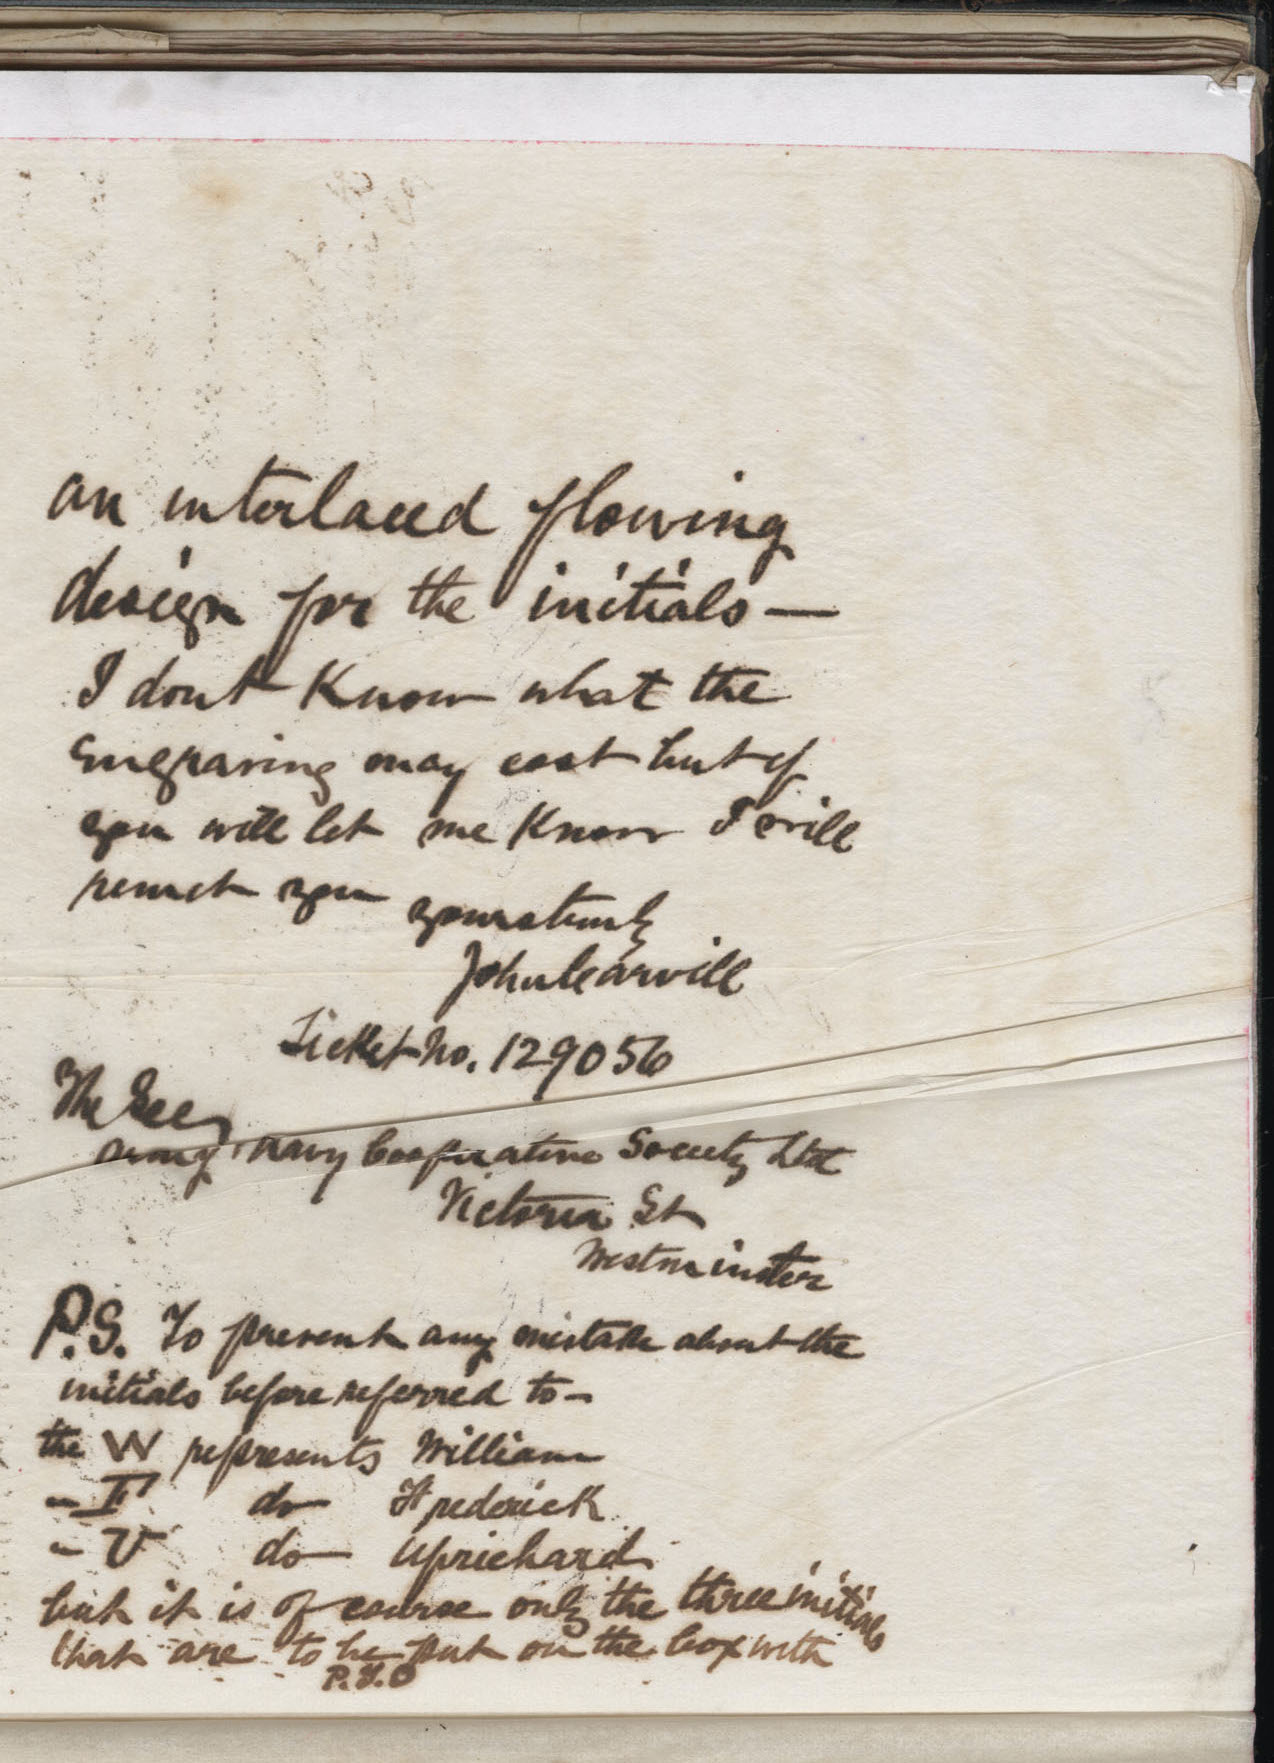 an interlaced flowing
design for the initials —
I dont Know what the
Engraving may cost but if
you will let me Know I will
remit you yours truly
John Carvill
Ticket No. 129056
The Secy
Army & Navy Cooperative Society Ltd
Victoria St
Westminster
P.S. To prevent any mistake about the
initials before referred to -
the W represents William
" F do Frederick
" U do Uprichard
but it is of course only the three initials
that are to be put on the box with
P.T.O